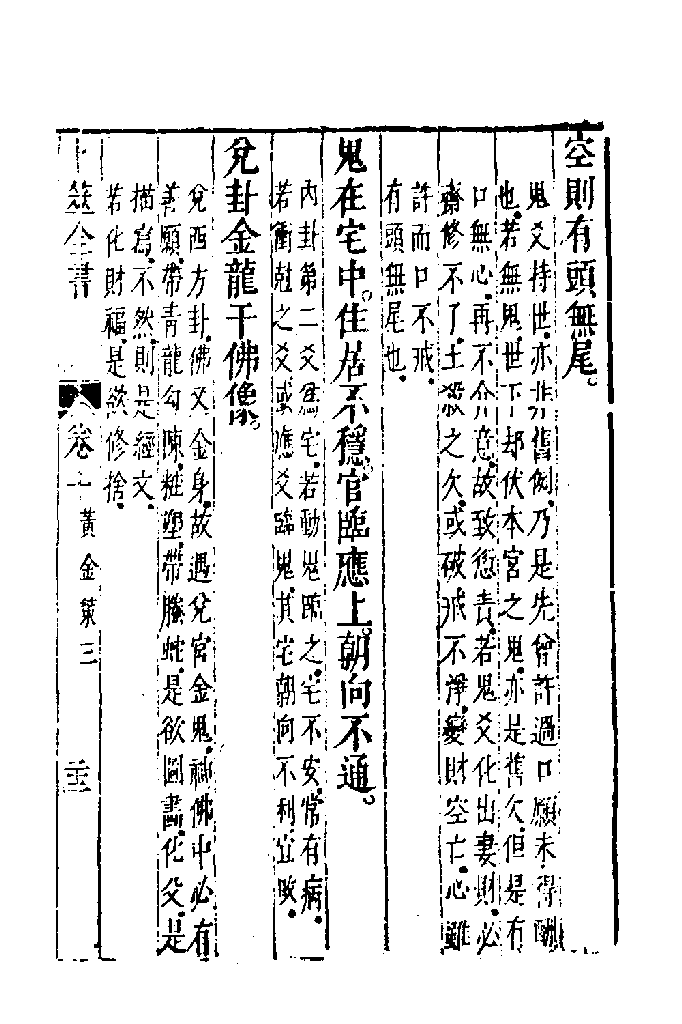 空則有頭無尾。
鬼爻持世。亦非舊例。乃是先曾許過口願未得酬
也。若無鬼。世下却伏本宮之鬼。亦是舊欠。但是有
口無心。再不介意。故致愆責。若鬼爻化出妻財。必
齋修不了。土殺之欠。或破戒不淨。變財空亡。心雖
許而口不戒。
有頭無尾也。
鬼在宅中。住居不穩。官臨應上。朝向不通。
內卦第二爻爲宅。若動鬼臨之。宅不安。常有病。
若衝尅之爻。或應爻臨鬼。其宅朝向不利。宜改。
兌卦金龍干佛像。
兌西方卦。佛又金身。故遇兌官金鬼。神佛中必有
善願。帶青龍勾陳。粧塑。帶螣蛇。是欲圖畵。化父。是
描寫。不然。則是經文。
若化財福。是欲修捨。
卜筮全書 卷十 黃金策三 二十三